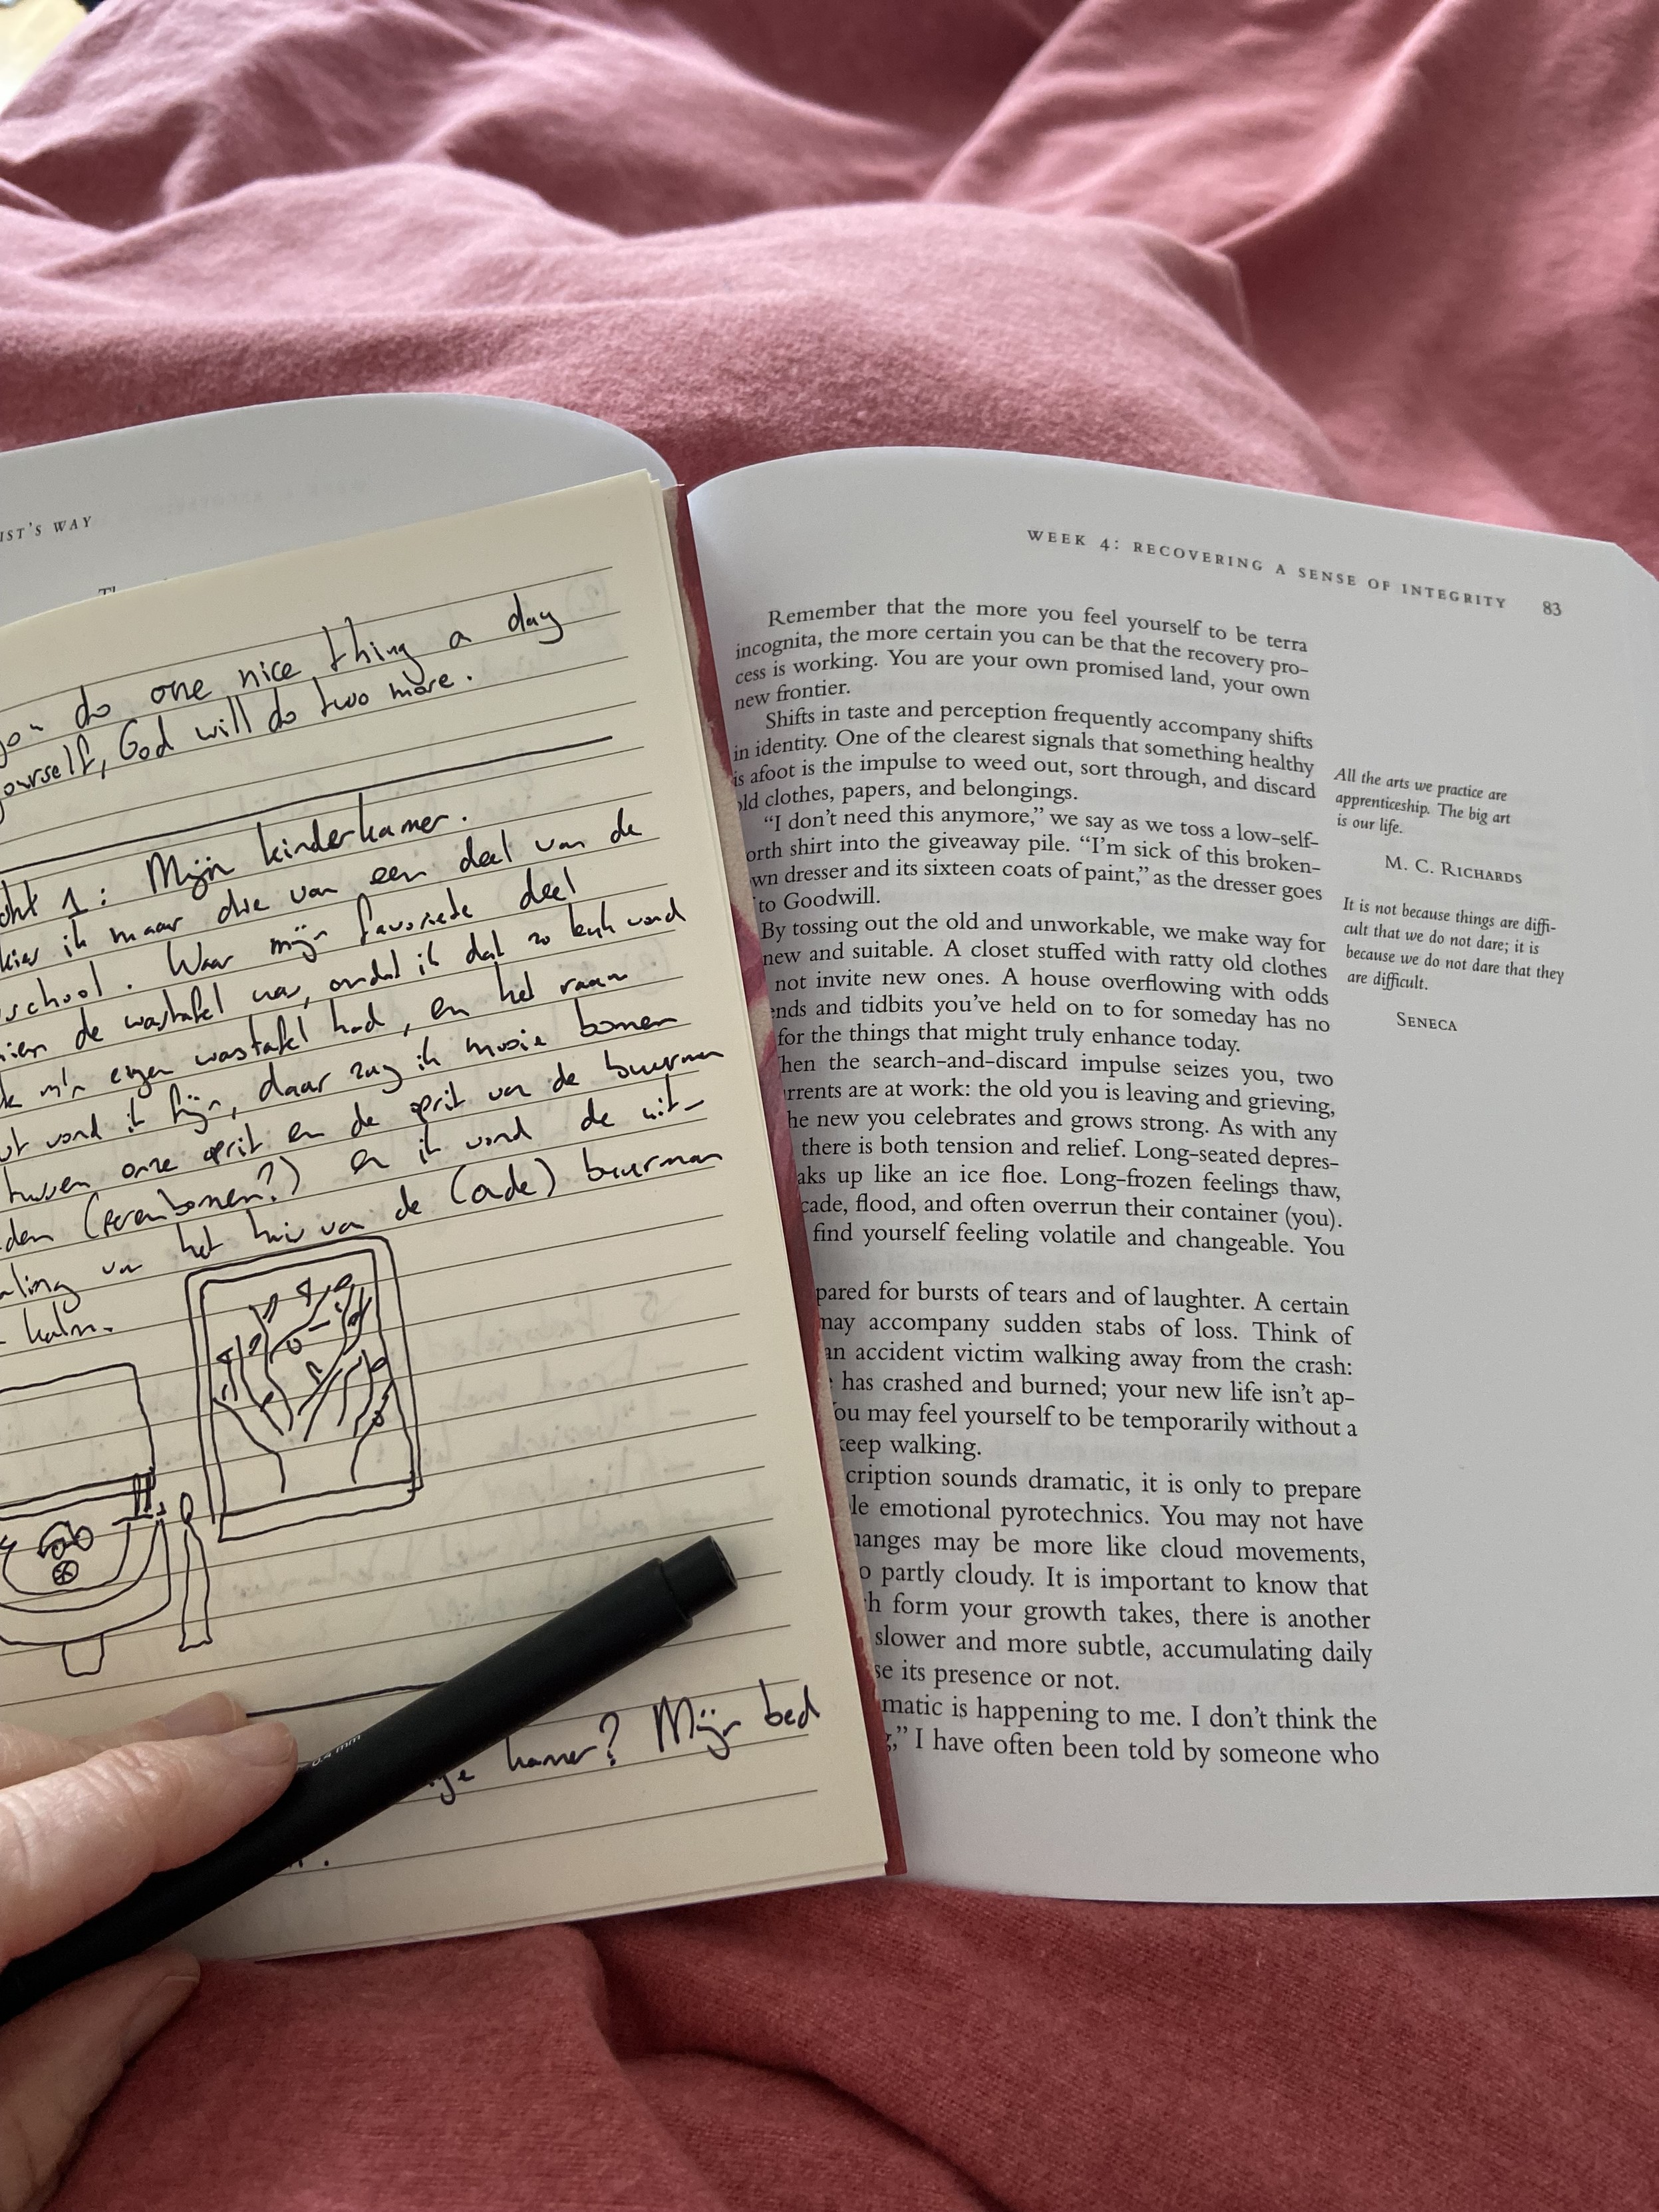 IST'S WAY
you do one nice thing a day
yourself, God will do two more.
1: Mijn kinderkamer.
ik maar die van een deel van de
school. Waar mijn favoriete deel
de wastafel was, omdat ik dat zo leuk vond
m'n eigen wastafel had, en het raam
vond ik fijn, daar zag ik mooie bomen
tussen onze oprit en de oprit van de buurman
(perenbomen?) en ik vond de uit-
aling van het huis van de (oude) buurman
kalm.
kamer? Mijn bed
0,4 mm
WEEK 4: RECOVERING A SENSE OF INTEGRITY 83
Remember that the more you feel yourself to be terra
incognita, the more certain you can be that the recovery pro-
cess is working. You are your own promised land, your own
new frontier.
Shifts in taste and perception frequently accompany shifts
in identity. One of the clearest signals that something healthy
is afoot is the impulse to weed out, sort through, and discard
old clothes, papers, and belongings.
"I don't need this anymore," we say as we toss a low-self-
orth shirt into the giveaway pile. "I'm sick of this broken-
wn dresser and its sixteen coats of paint," as the dresser goes
to Goodwill.
By tossing out the old and unworkable, we make way for
new and suitable. A closet stuffed with ratty old clothes
not invite new ones. A house overflowing with odds
ends and tidbits you've held on to for someday has no
for the things that might truly enhance today.
hen the search-and-discard impulse seizes you, two
rrents are at work: the old you is leaving and grieving,
he new you celebrates and grows strong. As with any
there is both tension and relief. Long-seated depres-
aks up like an ice floe. Long-frozen feelings thaw,
cade, flood, and often overrun their container (you).
find yourself feeling volatile and changeable. You
pared for bursts of tears and of laughter. A certain
may accompany sudden stabs of loss. Think of
an accident victim walking away from the crash:
has crashed and burned; your new life isn't ap-
You may feel yourself to be temporarily without a
keep walking.
cription sounds dramatic, it is only to prepare
le emotional pyrotechnics. You may not have
hanges may be more like cloud movements,
o partly cloudy. It is important to know that
h form your growth takes, there is another
slower and more subtle, accumulating daily
se its presence or not.
matic is happening to me. I don't think the
g," I have often been told by someone who
All the arts we practice are
apprenticeship. The big art
is our life.
M. C. RICHARDS
It is not because things are diffi-
cult that we do not dare; it is
because we do not dare that they
are difficult.
SENECA